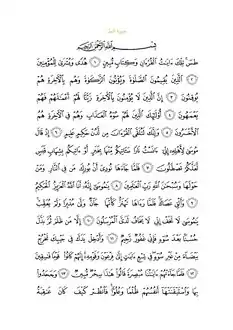 سورة النمل
بسم الله الرحمن الرحيم
طس تلك ءايت القرءان وكتاب مبين ١ هدى وبشرى للمؤمنين
٢ الذين يقيمون الصلوة ويؤتون الزكوة وهم بالأخرة هم
يوقنون ٣ إن الذين لا يؤمنون بالأخرة زينا لهم أعملهم فهم
يعمهون ٤ أولئك الذين لهم سوء العذاب وهم في الأخرة هم
الأخسرون ٥ وإنك لتلقى القرءان من لدن حكيم عليم ٦ إذ قال
موسى لأهله إني ءانست نارا سـاتيكم منها بخبر أو ءاتيكم بشهاب قبس
لعلكم تصطلون ٧ فلما جاءها نودي أن بورك من في النار ومن
حولها وسبحن الله رب العلمين ٨ يموسى إنه أنا الله العزيز الحكيم
٩ وألق عصاك فلما رءاها تهتز كأنها جان ولى مدبرا ولم يعقب
يموسى لا تخف إني لا يخاف لدي المرسلون ١٠ إلا من ظلم ثم بدل
حسنا بعد سوء فإني غفور رحيم ١١ وأدخل يدك في جيبك تخرج
بيضاء من غير سوء في تسع ءايت إلى فرعون وقومه إنهم كانوا قوما فسقين
١٢ فلما جاءتهم ءايتنا مبصرة قالوا هذا سحر مبين ١٣ وجحدوا
بها واستيقنتها أنفسهم ظلما وعلوا فانظر كيف كان عقبة